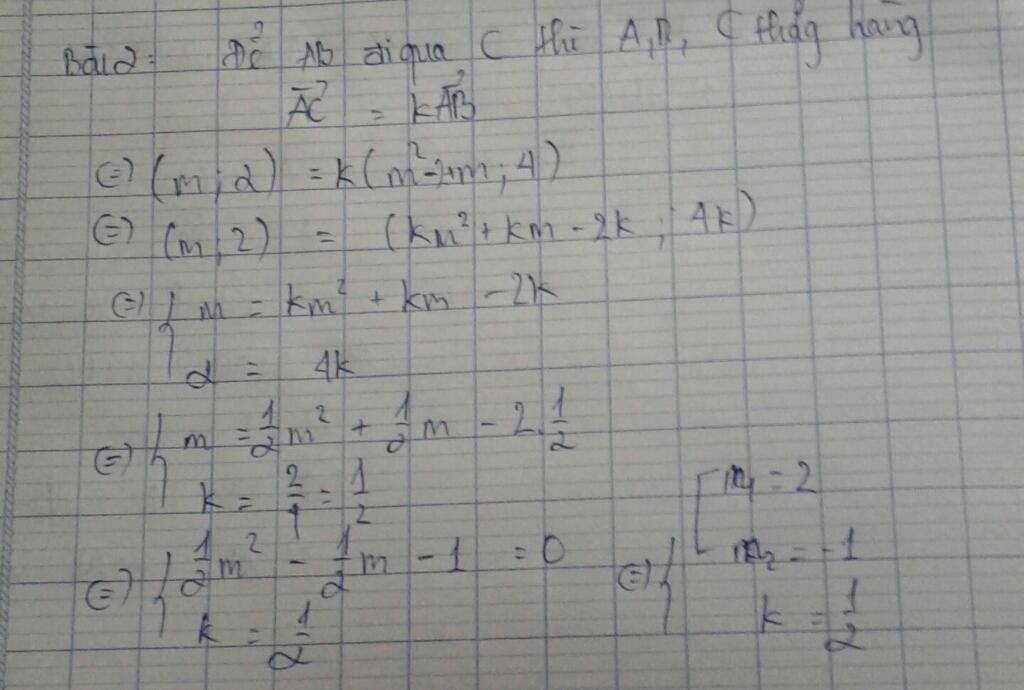 Bài 2: Để AB đi qua C thì A, B, C thẳg hàng
AC = kAB
⇔ (m; 2) = k(m² - 2 + m; 4)
⇔ (m; 2) = (km² + km - 2k; 4k)
⇔ { m = km² + km - 2k
2 = 4k
⇔ { m = 1/2 m² + 1/2 m - 2.1/2
k = 2/4 = 1/2
⇔ { 1/2 m² - 1/2 m - 1 = 0
k = 1/2
⇔ { [ m₁ = 2
m₂ = -1
k = 1/2